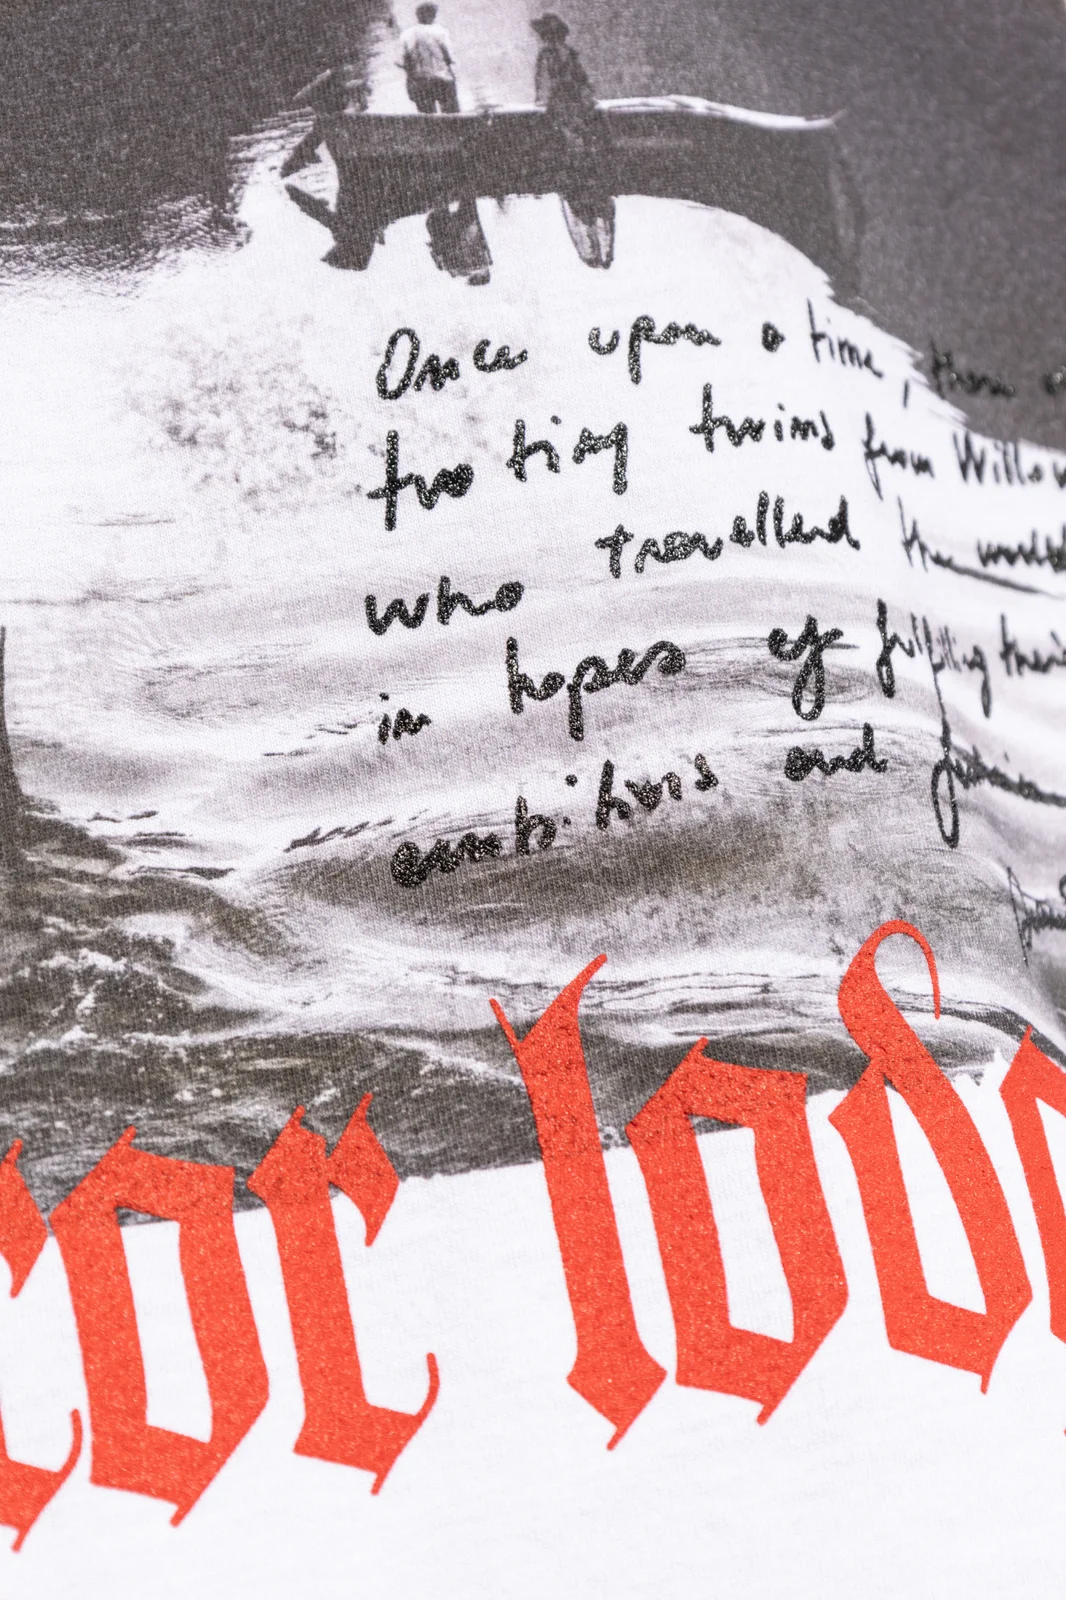 Once upon a time, there
two tiny twins from Willow
who travelled the
in hopes of fulfilling their
ambitions and
ror lod